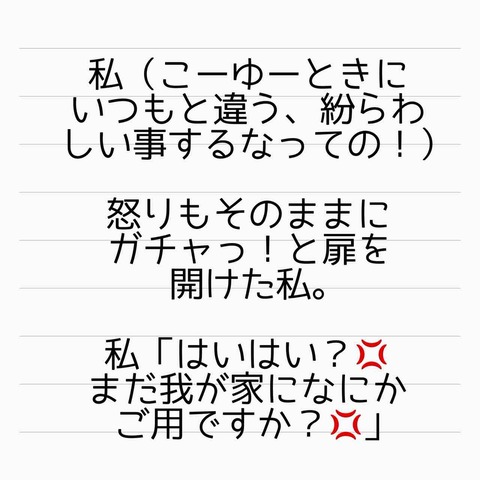 私（こーゆーときに
いつもと違う、紛らわ
しい事するなっての！）
怒りもそのままに
ガチャっ！と扉を
開けた私。
私「はいはい？💢
まだ我が家になにか
ご用ですか？💢」